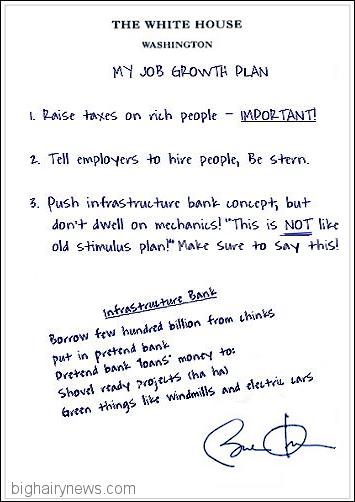 THE WHITE HOUSE
WASHINGTON
MY JOB GROWTH PLAN
1. Raise taxes on rich people - IMPORTANT!
2. Tell employers to hire people, Be stern.
3. Push infrastructure bank concept, but
don't dwell on mechanics! "This is NOT like
old stimulus plan!" Make sure to say this!
Infrastructure Bank
Borrow few hundred billion from chinks
put in pretend bank
Pretend bank "loans" money to:
Shovel ready projects (ha ha)
Green things like windmills and electric cars
bighairynews.com